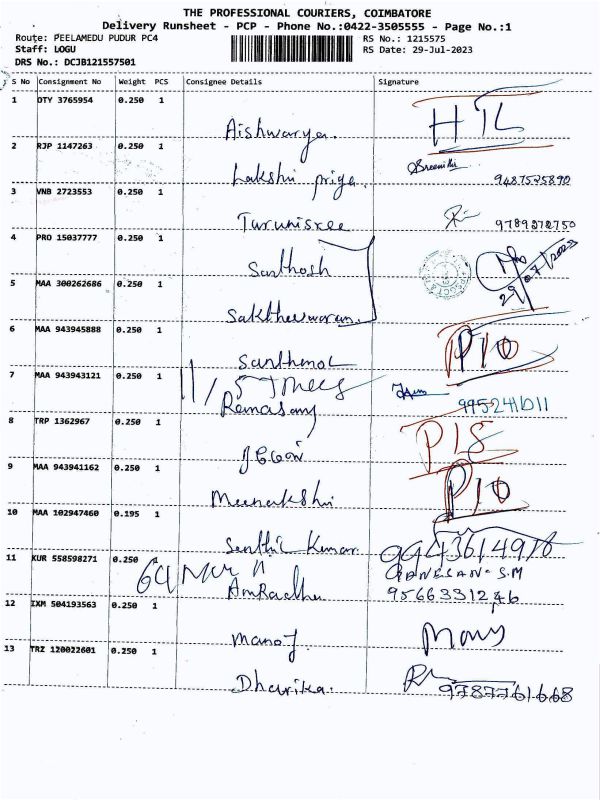 THE PROFESSIONAL COURIERS, COIMBATORE
Delivery Runsheet - PCP - Phone No.:0422-3505555 - Page No.:1
Route: PEELAMEDU PUDUR PC4
RS No.: 1215575
Staff: LOGU
RS Date: 29-Jul-2023
DRS No.: DCJB121557501
S No Consignment No Weight PCS Consignee Details Signature
1 OTY 3765954 0.250 1
Aishwarya. HTL
2 RJP 1147263 0.250 1
Lakshu priya. Sreenithi 9487525890
3 VNB 2723553 0.250 1
Tarunisree 9789272750
4 PRO 15037777 0.250 1
Santhosh
29/07/2023
5 MAA 300262686 0.250 1
Saktheeswaran.
6 MAA 943945888 0.250 1
P10
7 MAA 943943121 0.250 1
11/5 Times
Ramasamy 9952241011
8 TRP 1362967 0.250 1
P15
9 MAA 943941162 0.250 1
Meenakshi P10
10 MAA 102947460 0.195 1
Senthil Kumar. 9443614978
11 KUR 558598271 0.250 1
GANESAN S.M
AnuRadha 9566331246
12 IXM 504193563 0.250 1
Manoj
13 TRZ 120022601 0.250 1
Dharika. 9787761668